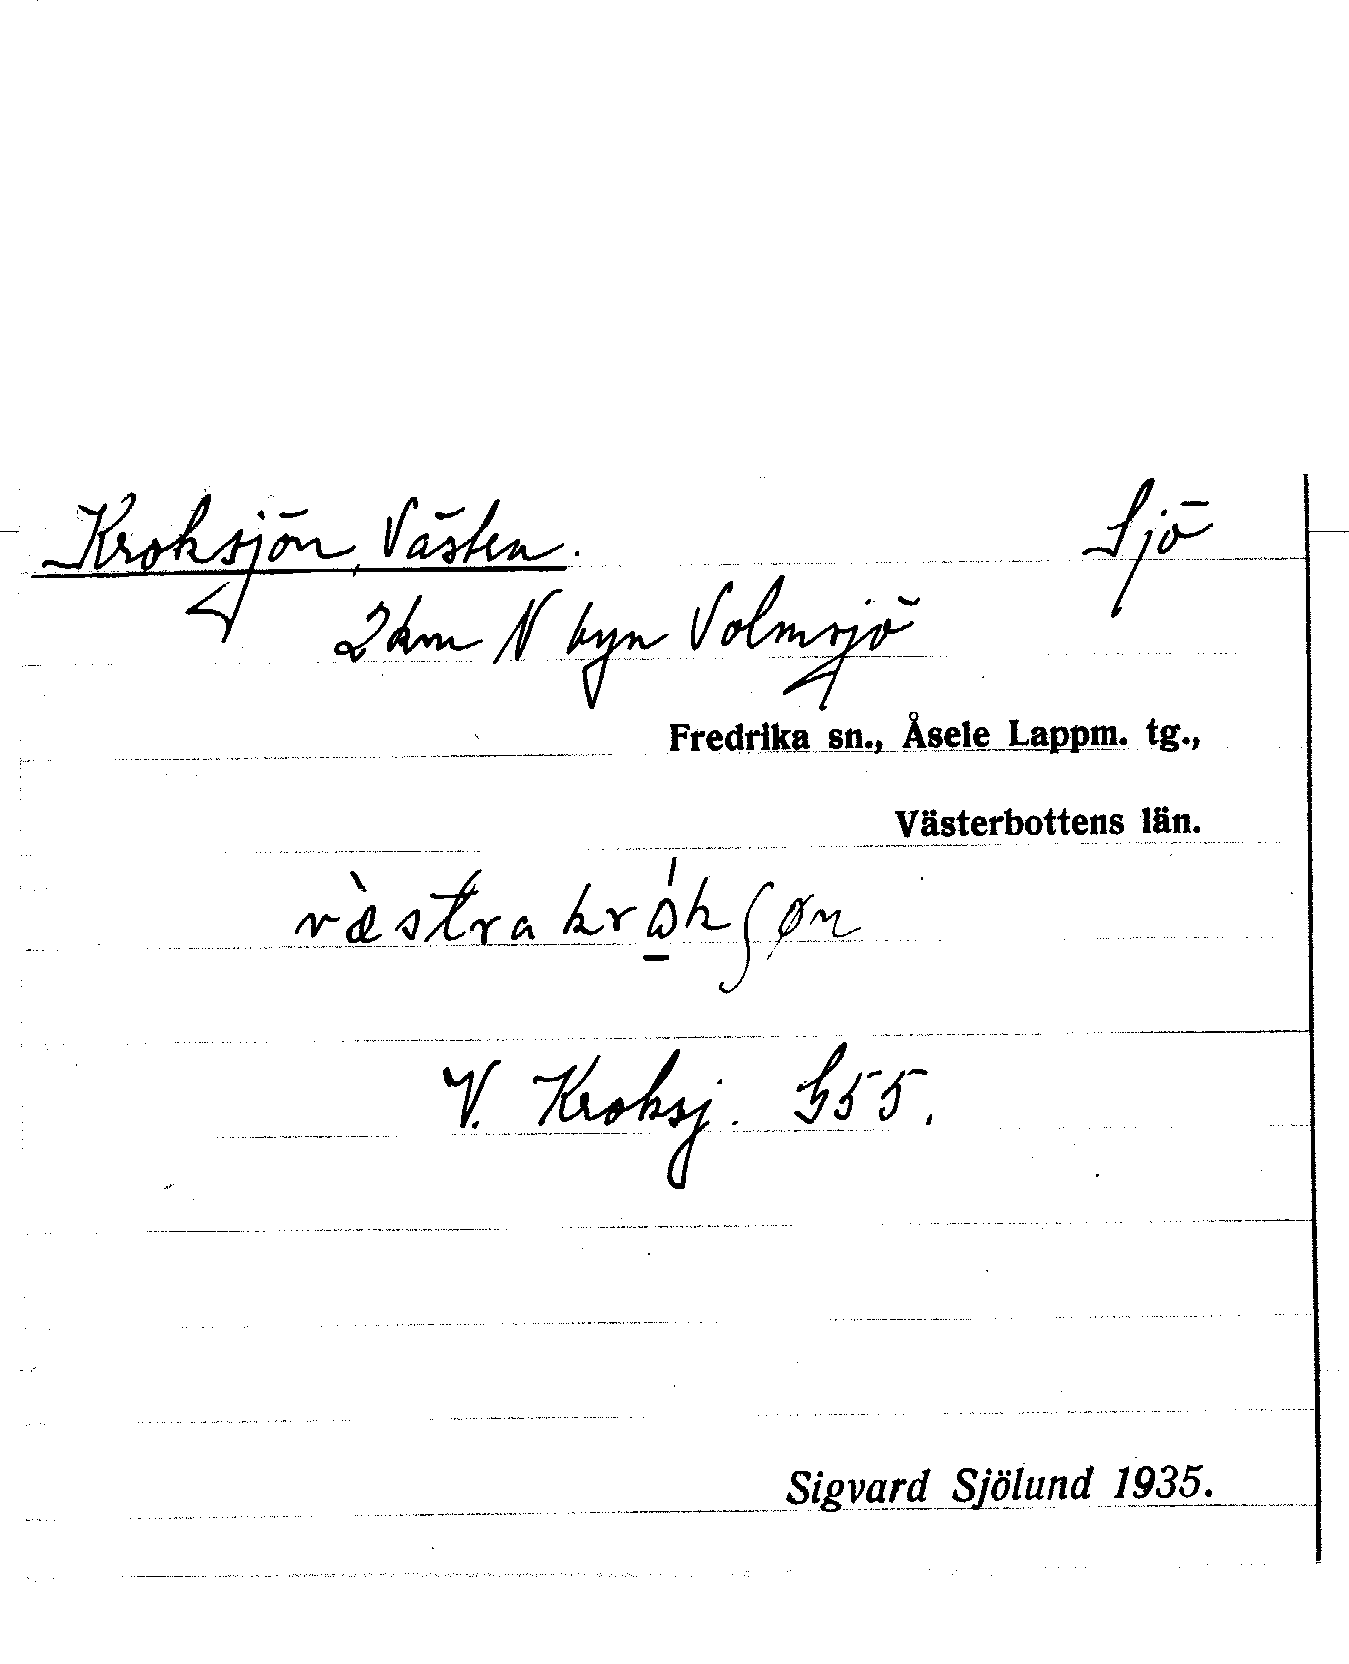 Kroksjön, Västra. Sjö
2 km N byn Volmsjö
Fredrika sn., Åsele Lappm. tg.,
Västerbottens län.
væ̀stra krώ̱kʃøn
V. Kroksj. G55.
Sigvard Sjölund 1935.